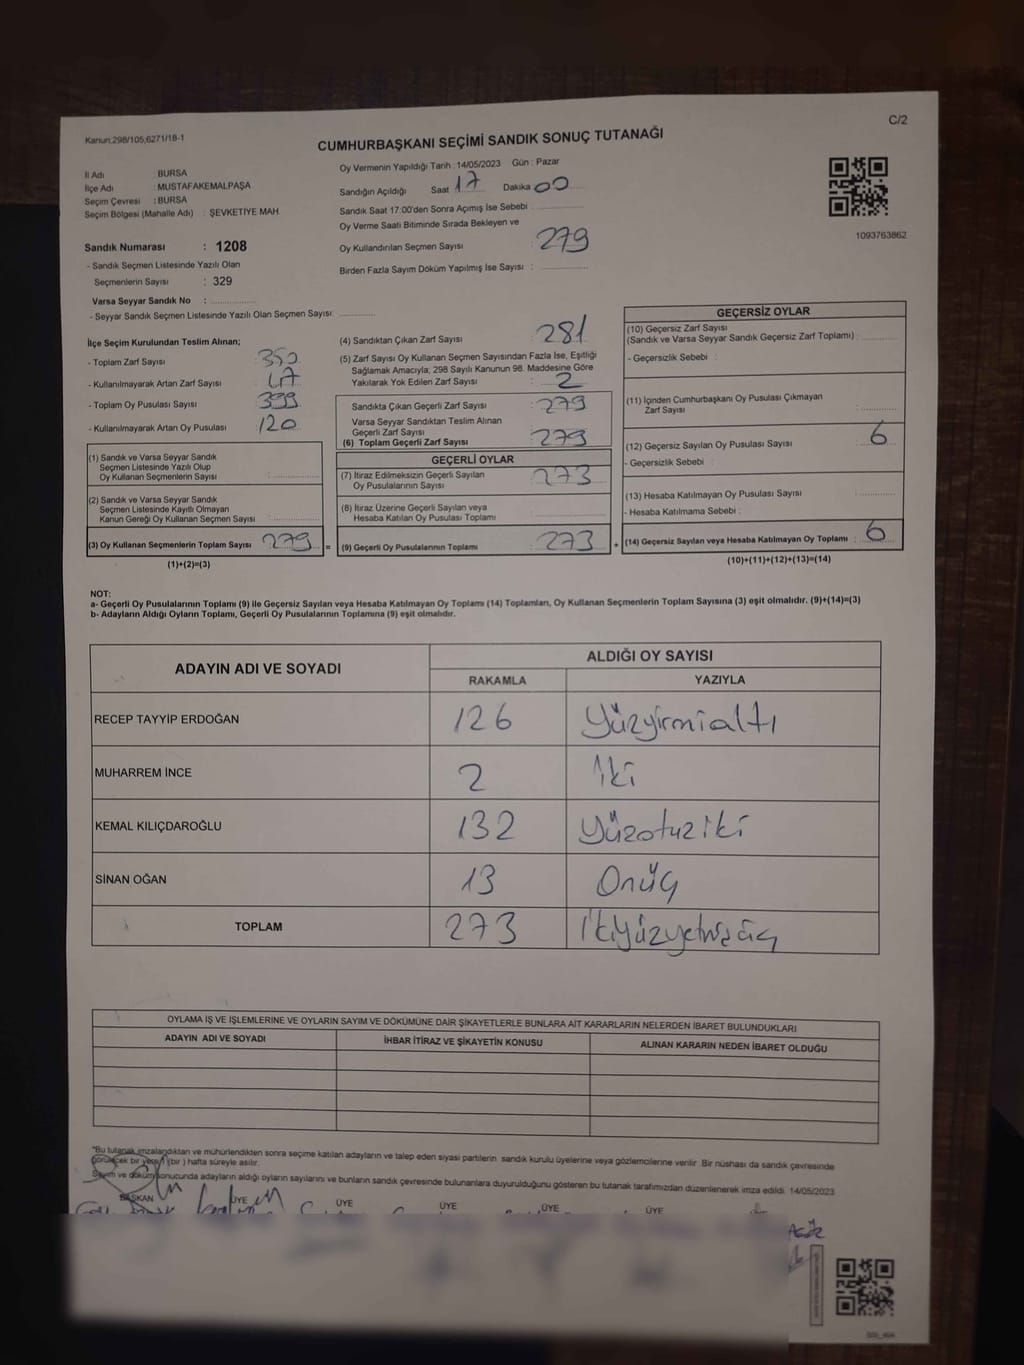 Kanun:298/105,6271/18-1
C/2
CUMHURBAŞKANI SEÇİMİ SANDIK SONUÇ TUTANAĞI
İl Adı BURSA
İlçe Adı : MUSTAFAKEMALPAŞA
Seçim Çevresi : BURSA
Seçim Bölgesi (Mahalle Adı) : ŞEVKETİYE MAH
Sandık Numarası : 1208
- Sandık Seçmen Listesinde Yazılı Olan
Seçmenlerin Sayısı : 329
Varsa Seyyar Sandık No :
- Seyyar Sandık Seçmen Listesinde Yazılı Olan Seçmen Sayısı:
Oy Vermenin Yapıldığı Tarih :14/05/2023 Gün : Pazar
Sandığın Açıldığı Saat 17 Dakika 00
Sandık Saat 17:00'den Sonra Açımış İse Sebebi
Oy Verme Saati Bitiminde Sırada Bekleyen ve
Oy Kullandırılan Seçmen Sayısı : 279
Birden Fazla Sayım Döküm Yapılmış İse Sayısı :
1093763862
İlçe Seçim Kurulundan Teslim Alınan;
- Toplam Zarf Sayısı 350
- Kullanılmayarak Artan Zarf Sayısı
- Toplam Oy Pusulası Sayısı 399
- Kullanılmayarak Artan Oy Pusulası 120
(1) Sandık ve Varsa Seyyar Sandık
Seçmen Listesinde Yazılı Olup
Oy Kullanan Seçmenlerin Sayısı :
(2) Sandık ve Varsa Seyyar Sandık
Seçmen Listesinde Kayıtlı Olmayan
Kanun Gereği Oy Kullanan Seçmen Sayısı
(3) Oy Kullanan Seçmenlerin Toplam Sayısı 279 =
(1)+(2)=(3)
(4) Sandıktan Çıkan Zarf Sayısı : 281
(5) Zarf Sayısı Oy Kullanan Seçmen Sayısından Fazla İse, Eşitliği
Sağlamak Amacıyla; 298 Sayılı Kanunun 98. Maddesine Göre
Yakılarak Yok Edilen Zarf Sayısı : 2
Sandıkta Çıkan Geçerli Zarf Sayısı : 279
Varsa Seyyar Sandıktan Teslim Alınan
Geçerli Zarf Sayısı
(6) Toplam Geçerli Zarf Sayısı 279
GEÇERLİ OYLAR
(7) İtiraz Edilmeksizin Geçerli Sayılan
Oy Pusulalarının Sayısı 273
(8) İtiraz Üzerine Geçerli Sayılan veya
Hesaba Katılan Oy Pusulası Toplamı
(9) Geçerli Oy Pusulalarının Toplamı 273 +
GEÇERSİZ OYLAR
(10) Geçersiz Zarf Sayısı
(Sandık ve Varsa Seyyar Sandık Geçersiz Zarf Toplamı)
- Geçersizlik Sebebi :
(11) İçinden Cumhurbaşkanı Oy Pusulası Çıkmayan
Zarf Sayısı
(12) Geçersiz Sayılan Oy Pusulası Sayısı : 6
- Geçersizlik Sebebi :
(13) Hesaba Katılmayan Oy Pusulası Sayısı
- Hesaba Katılmama Sebebi :
(14) Geçersiz Sayılan veya Hesaba Katılmayan Oy Toplamı : 6
(10)+(11)+(12)+(13)=(14)
NOT:
a- Geçerli Oy Pusulalarının Toplamı (9) ile Geçersiz Sayılan veya Hesaba Katılmayan Oy Toplamı (14) Toplamları, Oy Kullanan Seçmenlerin Toplam Sayısına (3) eşit olmalıdır. (9)+(14)=(3)
b- Adayların Aldığı Oyların Toplamı, Geçerli Oy Pusulalarının Toplamına (9) eşit olmalıdır.
ADAYIN ADI VE SOYADI ALDIĞI OY SAYISI
RAKAMLA YAZIYLA
RECEP TAYYİP ERDOĞAN 126 Yüzyirmialtı
MUHARREM İNCE 2 İki
KEMAL KILIÇDAROĞLU 132 Yüzotuziki
SİNAN OĞAN 13 Onüç
TOPLAM 273 İkiyüzyetmişüç
OYLAMA İŞ VE İŞLEMLERİNE VE OYLARIN SAYIM VE DÖKÜMÜNE DAİR ŞİKAYETLERLE BUNLARA AİT KARARLARIN NELERDEN İBARET BULUNDUKLARI
ADAYIN ADI VE SOYADI İHBAR İTİRAZ VE ŞİKAYETİN KONUSU ALINAN KARARIN NEDEN İBARET OLDUĞU
"Bu tutanak imzalandıktan ve mühürlendikten sonra seçime katılan adayların ve talep eden siyasi partilerin sandık kurulu üyelerine veya gözlemcilerine verilir. Bir nüshası da sandık çevresinde
görülecek bir yere 1 (bir ) hafta süreyle asılır.
Sayım ve döküm sonucunda adayların aldığı oyların sayılarını ve bunların sandık çevresinde bulunanlara duyurulduğunu gösteren bu tutanak tarafımızdan düzenlenerek imza edildi. 14/05/2023
BAŞKAN ÜYE ÜYE ÜYE ÜYE ÜYE